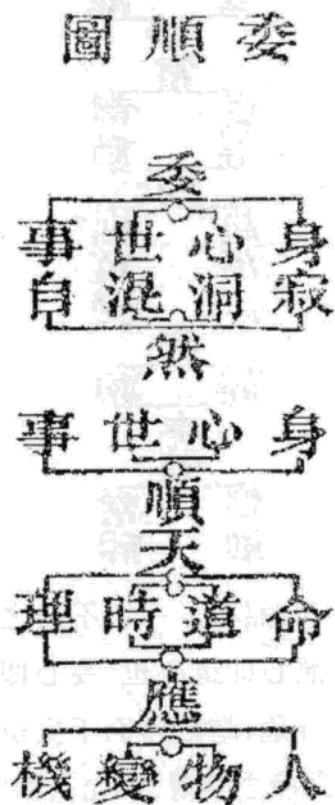 委順圖
委
身心世事
寂洞混自
然
身心世事
順
天
命道時理
應
人物變機